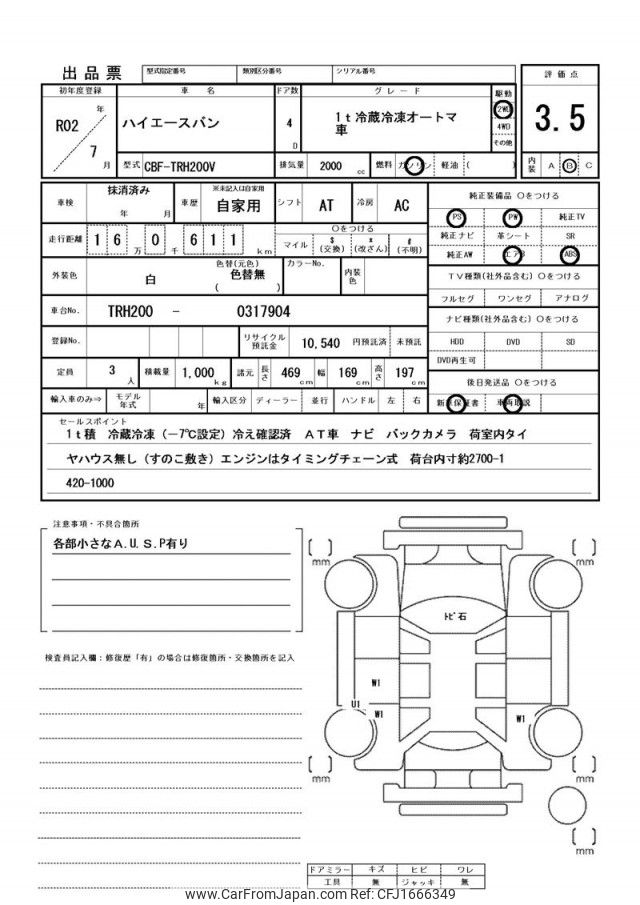 出品票 型式指定番号 類別区分番号 シリアル番号
初年度登録 車名 ドア数 グレード 駆動 評価点
R02 年 7 月 ハイエースバン 4 D 1t冷蔵冷凍オートマ
車
2WD
4WD
その他
3.5
型式 CBF-TRH200V 排気量 2000 cc 燃料 ガソリン 軽油 ( ) 内装 A B C
車検 抹消済み 年 月 車歴 ※未記入は自家用 自家用 シフト AT 冷房 AC
走行距離 16万0千611km 〇をつける
マイル $(交換) *(改ざん) #(不明)
外装色 白 色替(元色) 色替無 ( ) カラーNo. 内装色
車台No. TRH200 - 0317904
登録No. リサイクル預託金 10,540 円預託済 未預託
定員 3 人 積載量 1,000 kg 諸元 長さ 469 cm 幅 169 cm 高さ 197 cm
輸入車のみ⇒ モデル年式 年 輸入区分 ディーラー 並行 ハンドル 左 右
純正装備品 〇をつける
PS PW 純正TV
純正ナビ 革シート SR
純正AW エアB ABS
TV種類(社外品含む) 〇をつける
フルセグ ワンセグ アナログ
ナビ種類(社外品含む) 〇をつける
HDD DVD SD
DVD再生可
後日発送品 〇をつける
新車保証書 車両取説
セールスポイント
1t積 冷蔵冷凍(−7℃設定)冷え確認済 AT車 ナビ バックカメラ 荷室内タイ
ヤハウス無し(すのこ敷き)エンジンはタイミングチェーン式 荷台内寸約2700-1
420-1000
注意事項・不具合箇所
各部小さなA.U.S.P有り
検査員記入欄:修復歴「有」の場合は修復箇所・交換箇所を記入
[ ] mm
[ ] mm
ﾄﾋﾞ石
W1
U1
W1
W1
[ ] mm
[ ] mm
[ ] mm
ドアミラー キズ ヒビ ワレ
工具 無 ジャッキ 無
www.CarFromJapan.com CFJ1666349